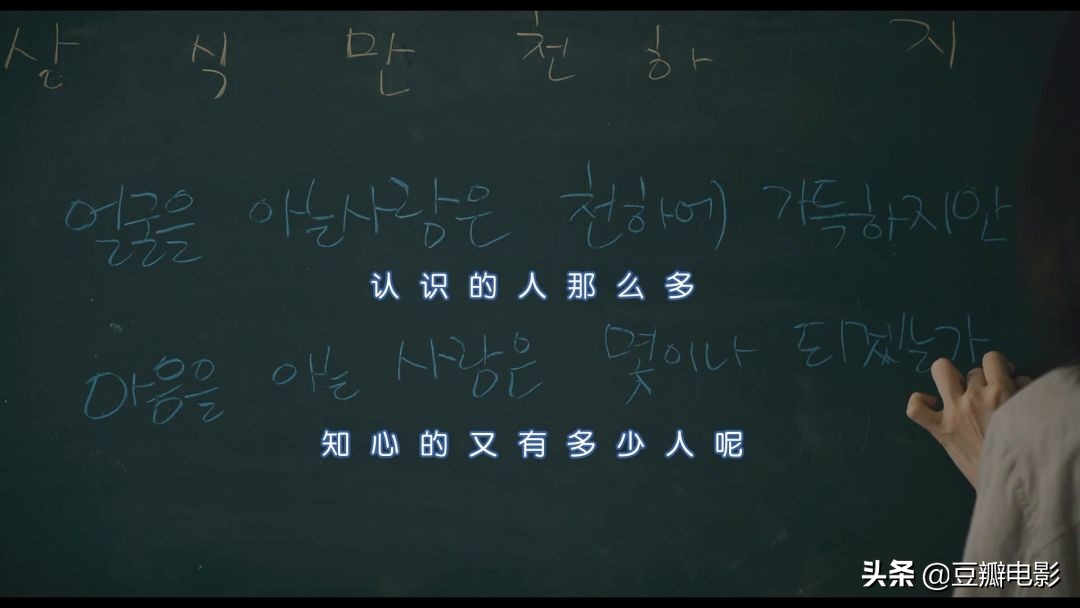 상 식 만 천 하 지
얼굴을 아는사람은 천하에 가득하지만
认识的人那么多
마음을 아는 사람은 몇이나 되겠는가
知心的又有多少人呢
头条 @豆瓣电影